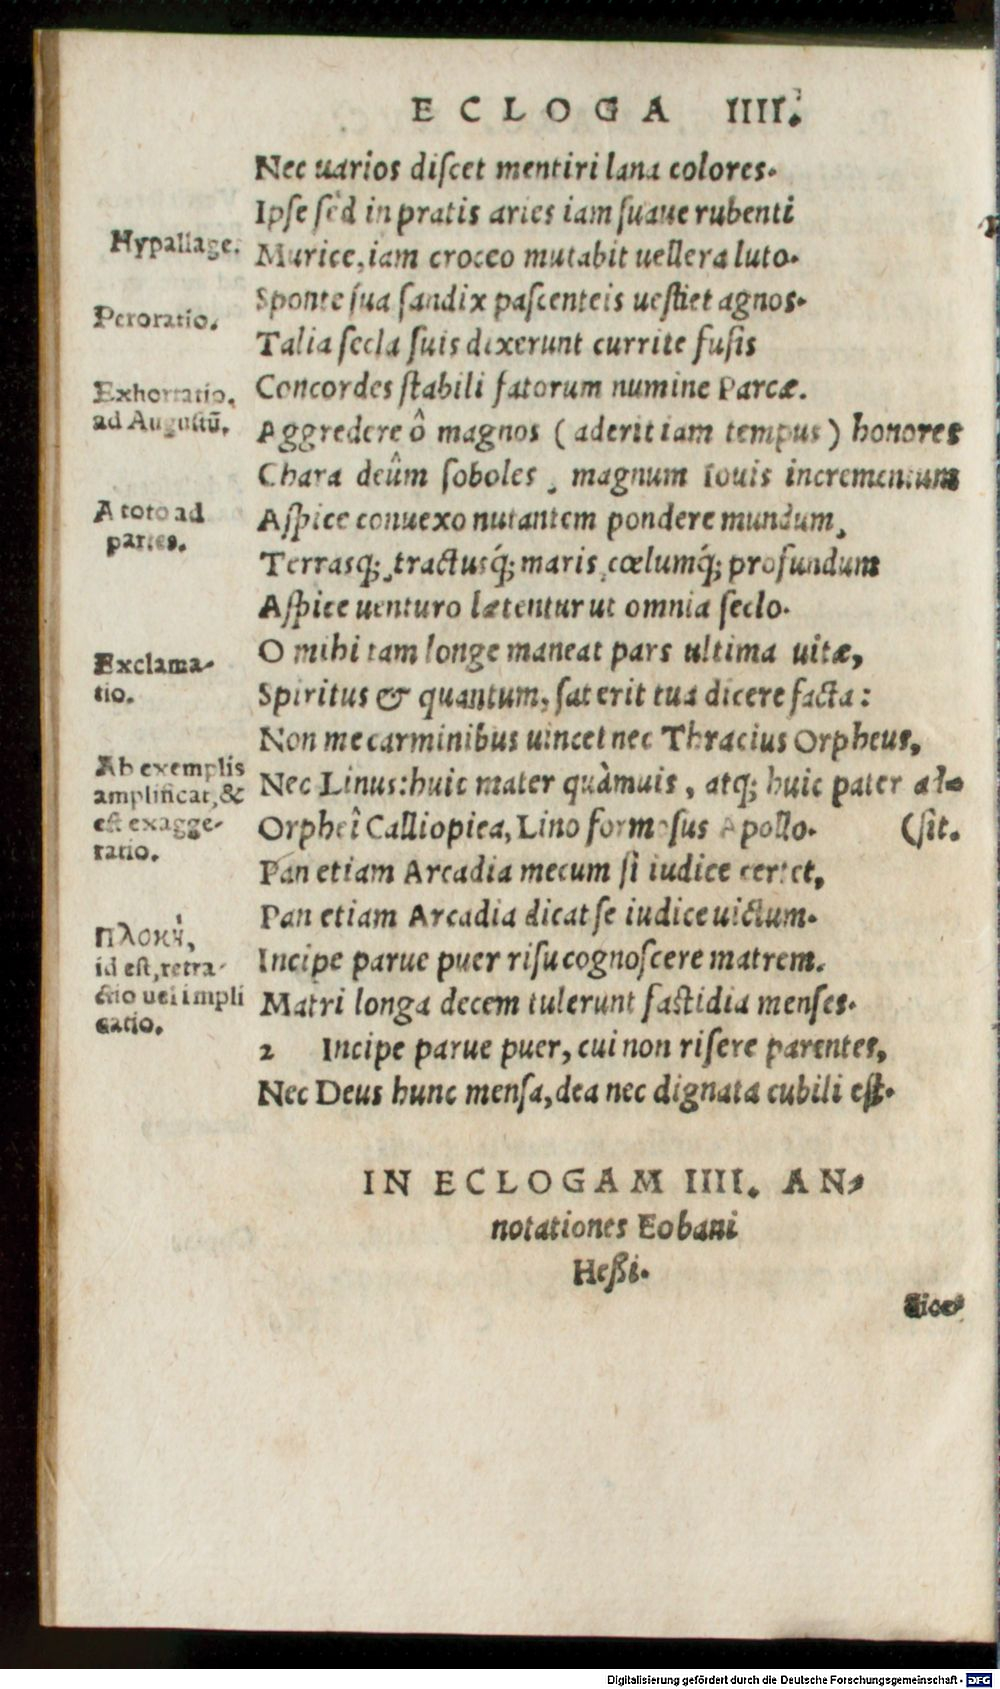 ECLOGA IIII.
Nec uarios diſcet mentiri lana colores.
Ipſe ſed in pratis aries iam ſuaue rubenti
Hypallage.
Murice, iam croceo mutabit uellera luto.
Sponte ſua ſandix paſcenteis ueſtiet agnos.
Peroratio.
Talia ſecla ſuis dixerunt currite fuſis
Concordes ſtabili fatorum numine Parcæ.
Exhortatio.
ad Auguſtũ.
Aggredere ô magnos (aderit iam tempus) honores
Chara deûm ſoboles, magnum Iouis incrementum
A toto ad
partes.
Aſpice conuexo nutantem pondere mundum,
Terrasq;, tractusq́; maris, cœlumq́; profundum
Aſpice uenturo lætentur ut omnia ſeclo.
O mihi tam longe maneat pars ultima uitæ,
Exclama-
tio.
Spiritus & quantum, ſat erit tua dicere facta:
Non me carminibus uincet nec Thracius Orpheus,
Ab exemplis
amplificat, &
eſt exagge-
ratio.
Nec Linus: huic mater quàmuis, atq; huic pater ad-
Orpheî Calliopica, Lino formoſus Apollo. (ſit.
Pan etiam Arcadia mecum ſi iudice certet,
Pan etiam Arcadia dicat ſe iudice uictum.
Πλοκή,
id eſt, retra-
ctio uel impli
catio.
Incipe parue puer riſu cognoſcere matrem.
Matri longa decem tulerunt faſtidia menſes.
2 Incipe parue puer, cui non riſere parentes,
Nec Deus hunc menſa, dea nec dignata cubili eſt.
IN ECLOGAM IIII. AN-
notationes Eobani
Heßi.
Digitalisierung gefördert durch die Deutsche Forschungsgemeinschaft - DFG